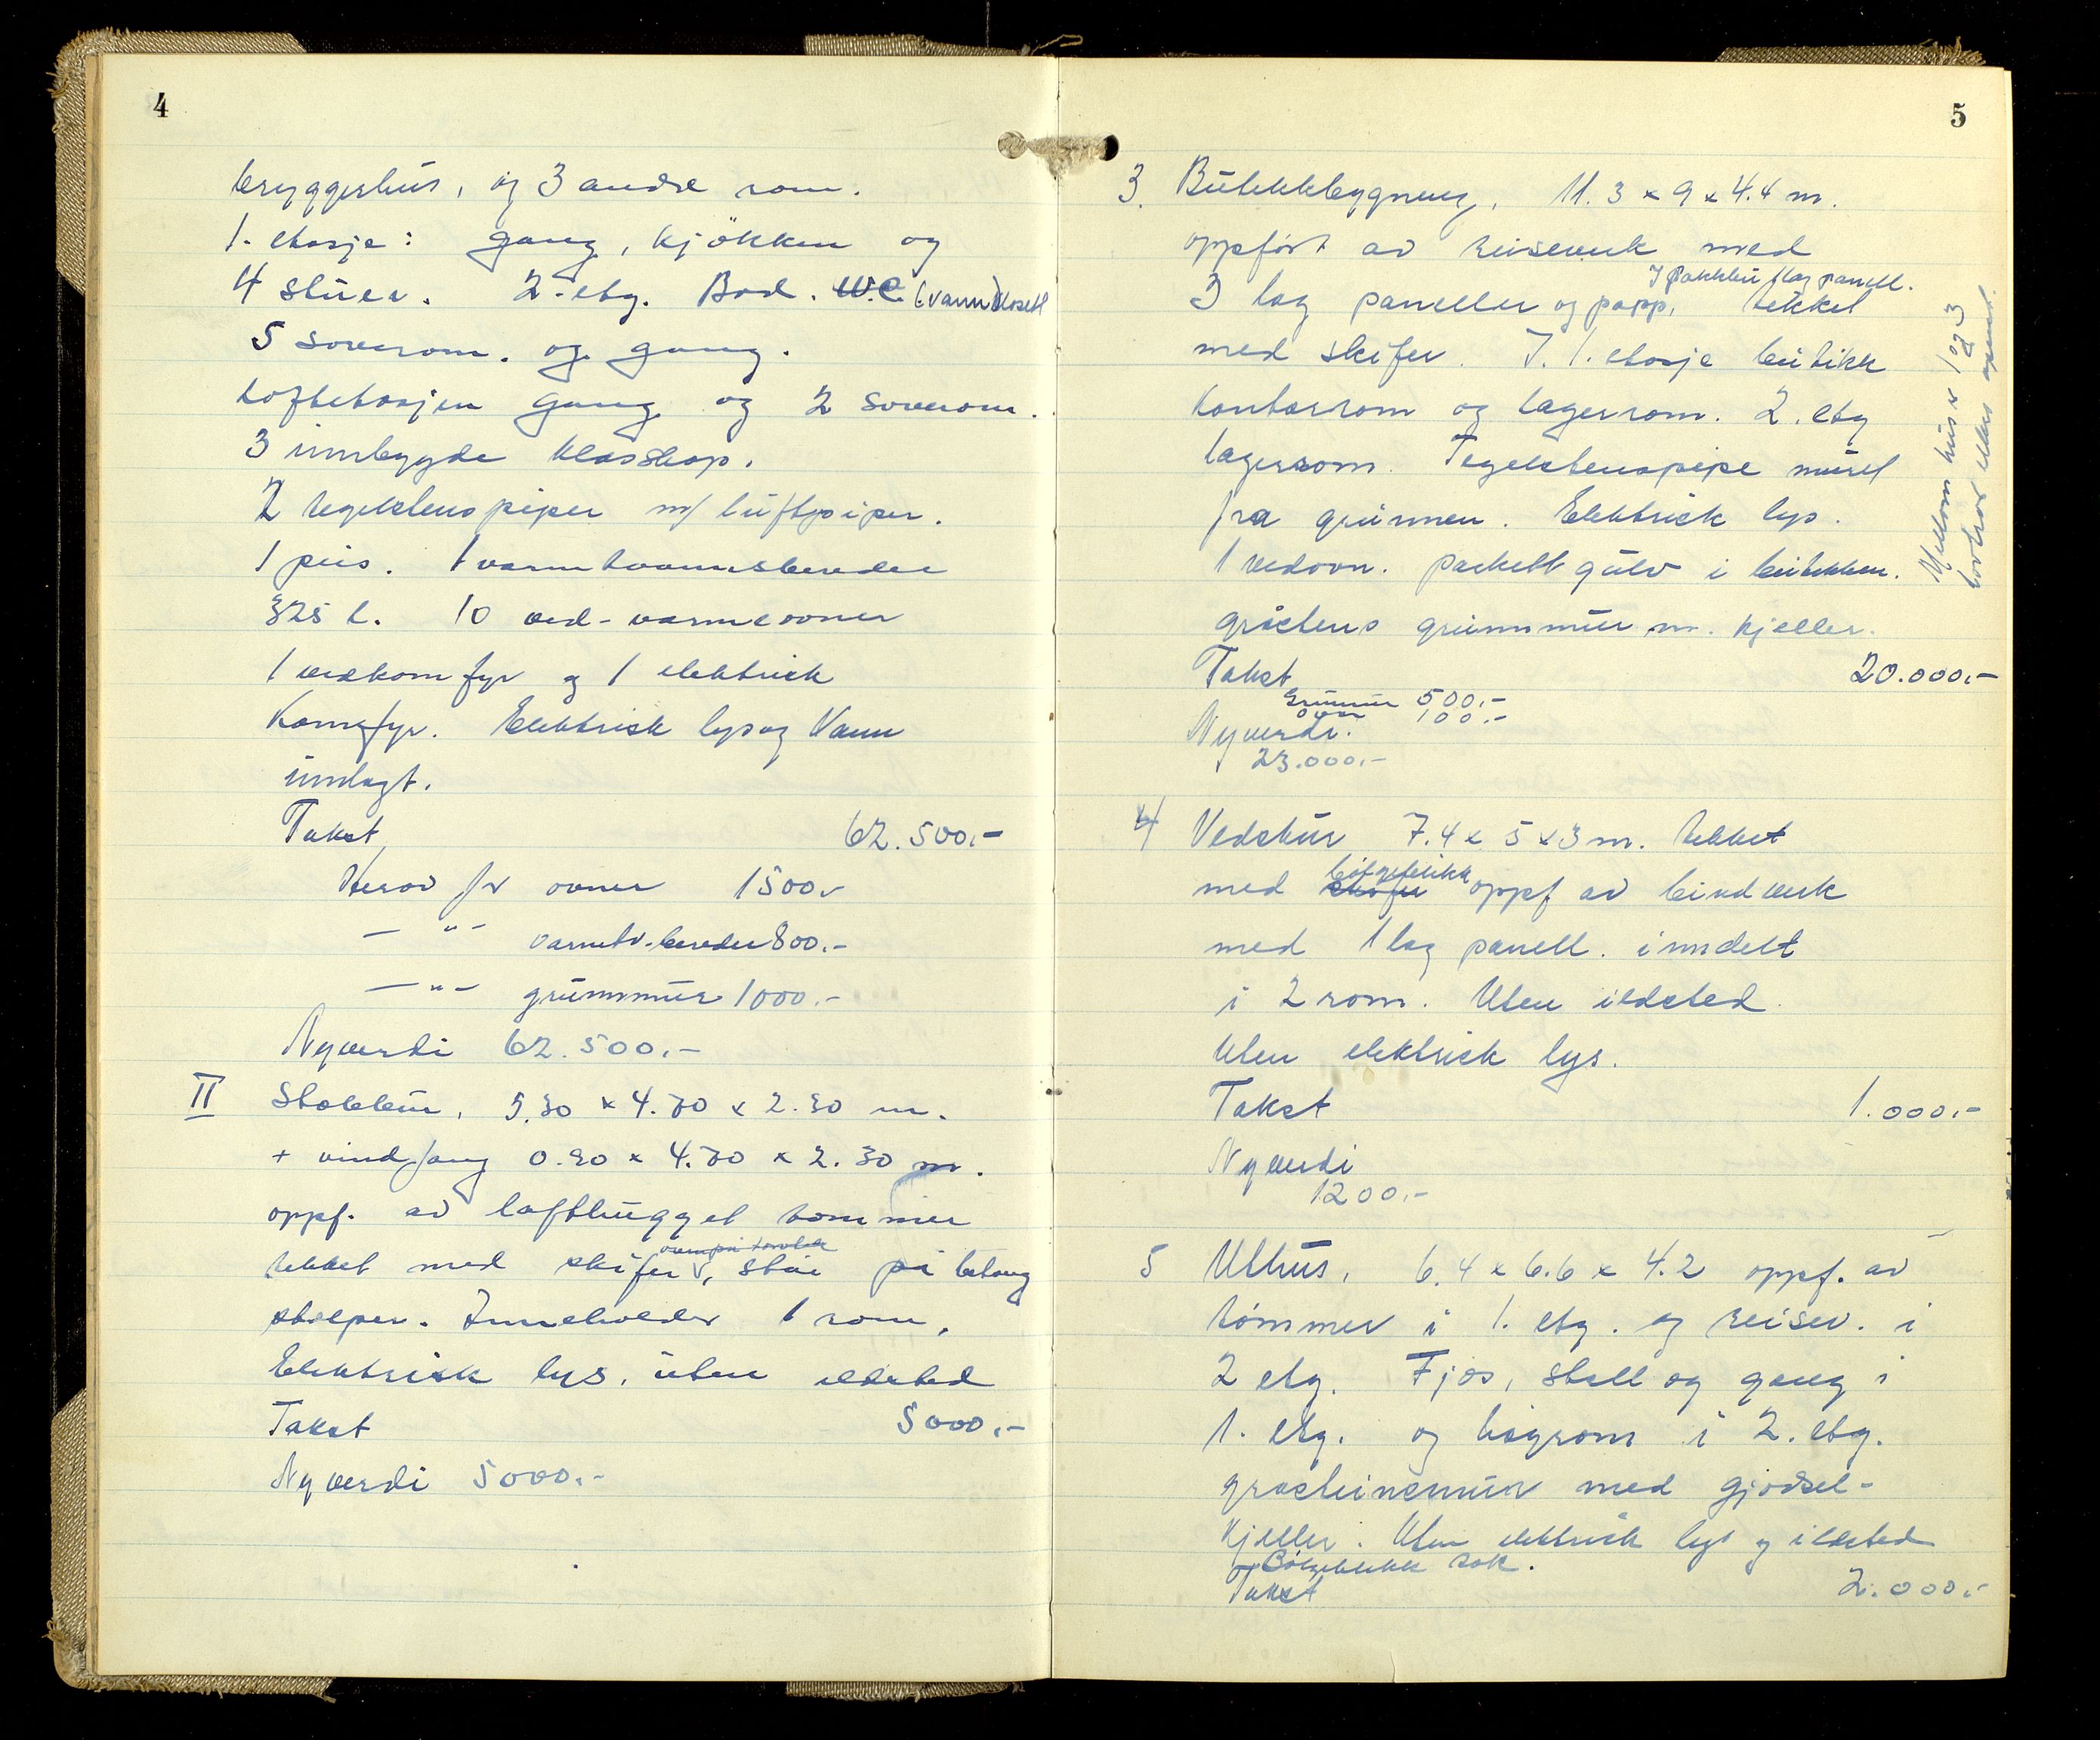 4
bryggerhus, og 3 andre rom.
1. etasje: gang, kjökken og
4 stuer. 2. etg. Bad. W.C. (vannklosett
5 soverom. og gang.
Loftetasjen gang og 2 soverom.
3 innbygde klesskap.
2 tegelstenspiper m/ luftpiper.
1 peis. 1 varmtvannsbereder
325 l. 10 ved-varmeovner
1 vedkomfyr og 1 elektrisk
Komfyr. Elektrisk lys og Vann
innlagt.
Takst 62.500.-
Herav for ovner 1500.-
— " — varmtv.bereder 800.-
— " — grunnmur 1000.-
Nyverdi 62.500.-
II Stabbur, 5.30 x 4.70 x 2.30 m.
+ vindfang 0.90 x 4.70 x 2.30 m.
oppf. av lafthugget tømmer
tekket med skifer, står på betong
stolper. Inneholder 1 rom,
Elektrisk lys, uten ildsted
Takst 5000.-
Nyverdi 5000.-
5
3. Butikkbygning, 11.3 x 9 x 4.4 m.
oppført av reisverk med
I pakkbu 1 lag panell.
3 lag paneller og papp, tekket
med skifer. I 1. etasje butikk
Kontorrom og lagerrom. 2. etg
lagerrom. Tegelstenspipe muret
fra grunnen. Elektrisk lys.
1 vedovn. parkett gulv i butikken.
gråstens grunnmur m. kjeller.
Takst 20.000.-
Grunnmur 500.-
ovn 100.-
Nyverdi.
23.000.-
Mellom hus nr 1 og 3
4 Vedskur 7.4 x 5 x 3 m. tekket
bølgeblikk
med skifer oppf av bindverk
med 1 lag panell. inndelt
i 2 rom. Uten ildsted.
Uten elektrisk lys.
Takst 1.000.-
Nyverdi
1200.-
5 Uthus, 6.4 x 6.6 x 4.2 oppf. av
tømmer i 1. etg. og reisv. i
2 etg. Fjøs, stall og gang i
1. etg. og høyrom i 2. etg.
gråsteinsmur med gjødsel-
Kjeller. Uten elektrisk lys og ildsted
Bølgeblikk tak.
Takst 2.000.-